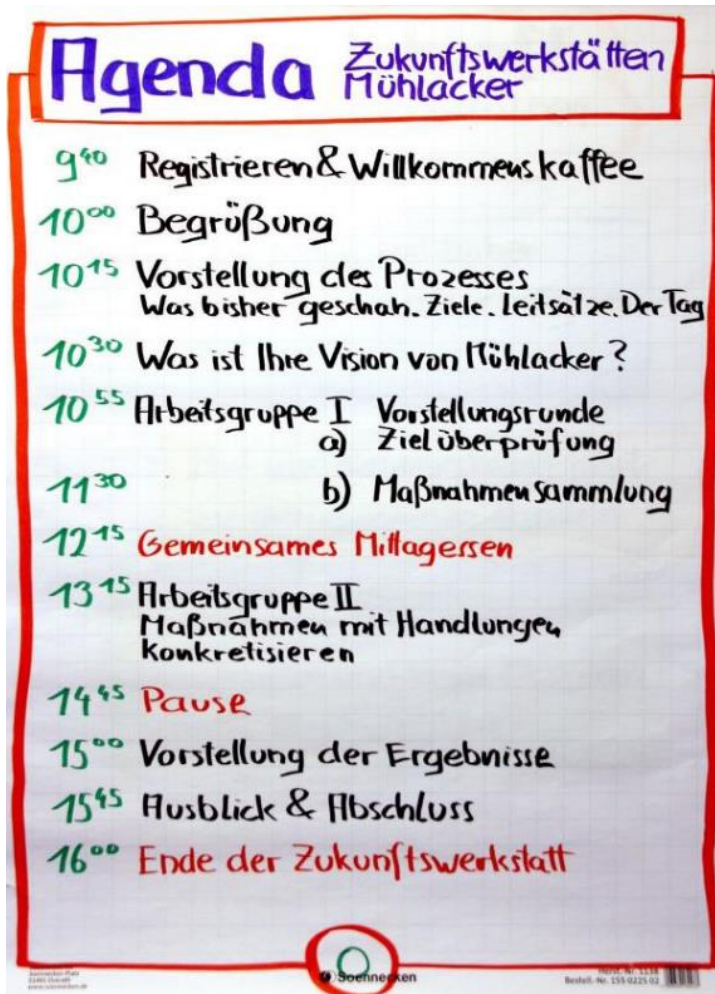 Agenda Zukunftswerkstätten
Mühlacker
9⁴⁰ Registrieren & Willkommenskaffee
10⁰⁰ Begrüßung
10¹⁵ Vorstellung des Prozesses
Was bisher geschah. Ziele. Leitsätze. Der Tag
10³⁰ Was ist Ihre Vision von Mühlacker?
10⁵⁵ Arbeitsgruppe I Vorstellungsrunde
a) Zielüberprüfung
11³⁰ b) Maßnahmensammlung
12¹⁵ Gemeinsames Mittagessen
13¹⁵ Arbeitsgruppe II
Maßnahmen mit Handlungen
konkretisieren
14⁴⁵ Pause
15⁰⁰ Vorstellung der Ergebnisse
15⁴⁵ Ausblick & Abschluss
16⁰⁰ Ende der Zukunftswerkstatt
Soennecken-Platz
51491 Overath
www.soennecken.de
Soennecken
Bestell.-Nr. 155 0225 02